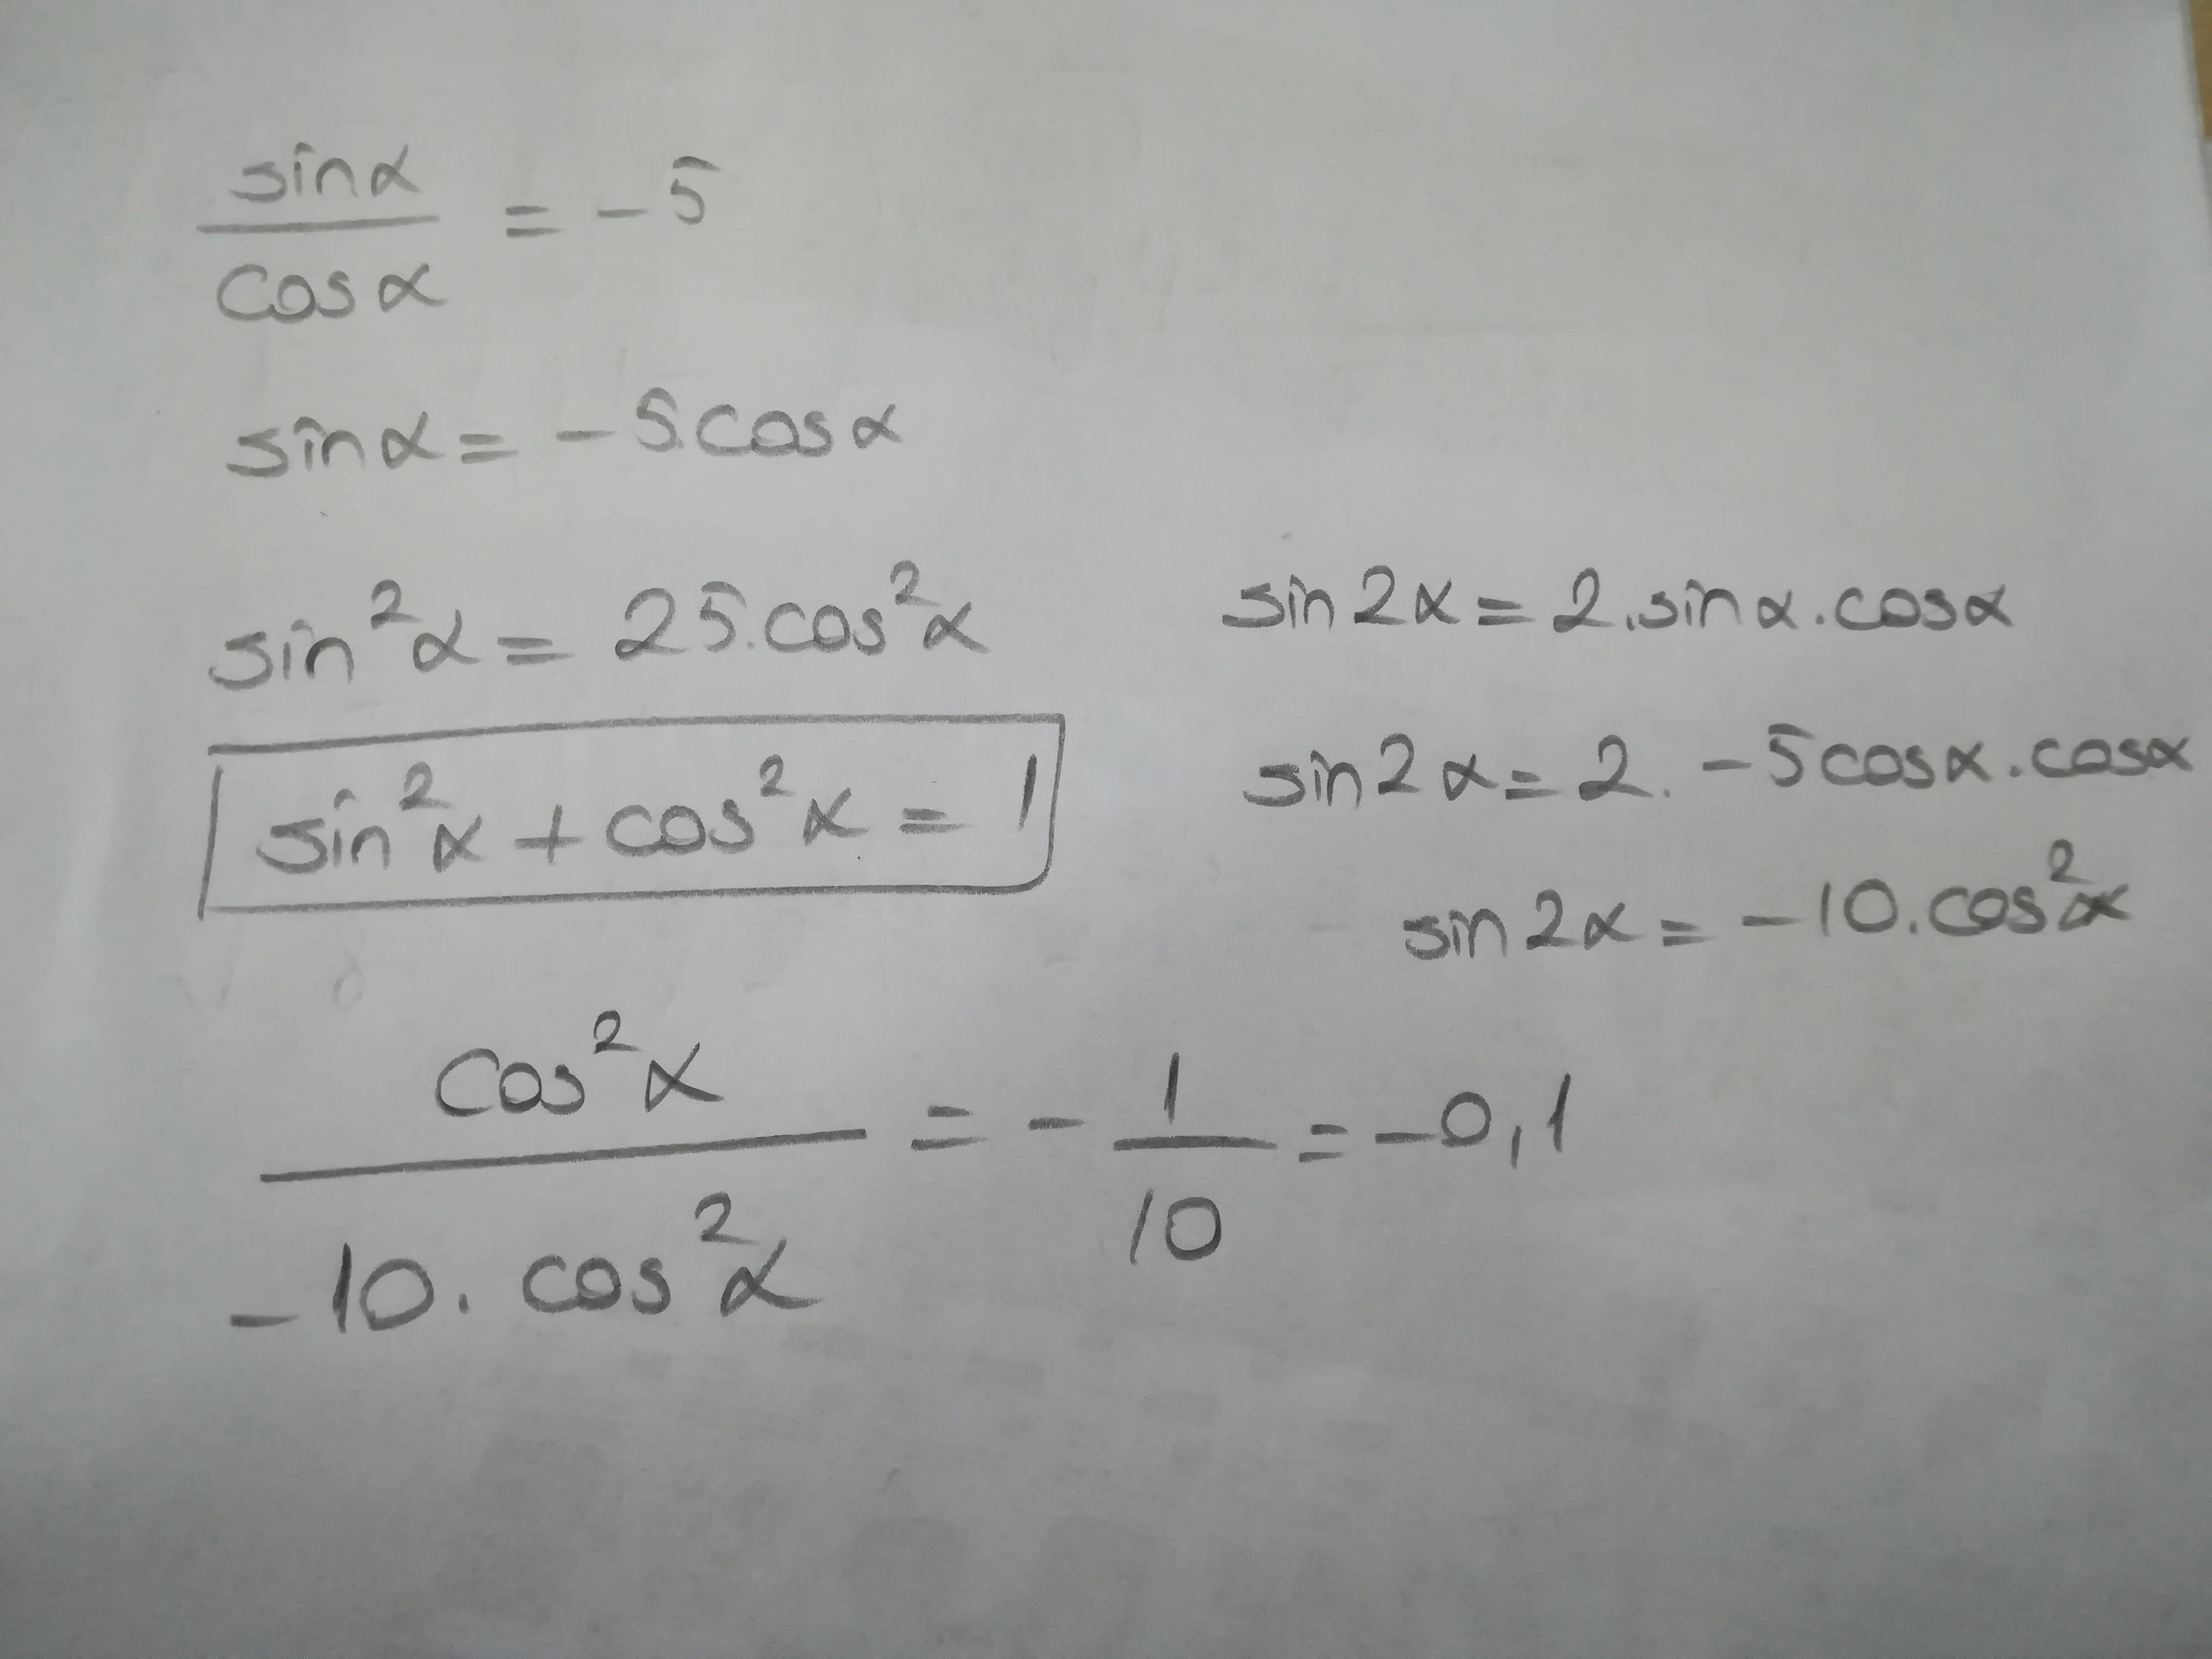 sinα
cosα
= -5
sinα = -5.cosα
sin²α = 25.cos²α
sin²α + cos²α = 1
sin2α = 2.sinα.cosα
sin2α = 2. -5cosα.cosα
sin2α = -10.cos²α
cos²α
-10. cos²α
= -
1
10
= -0,1